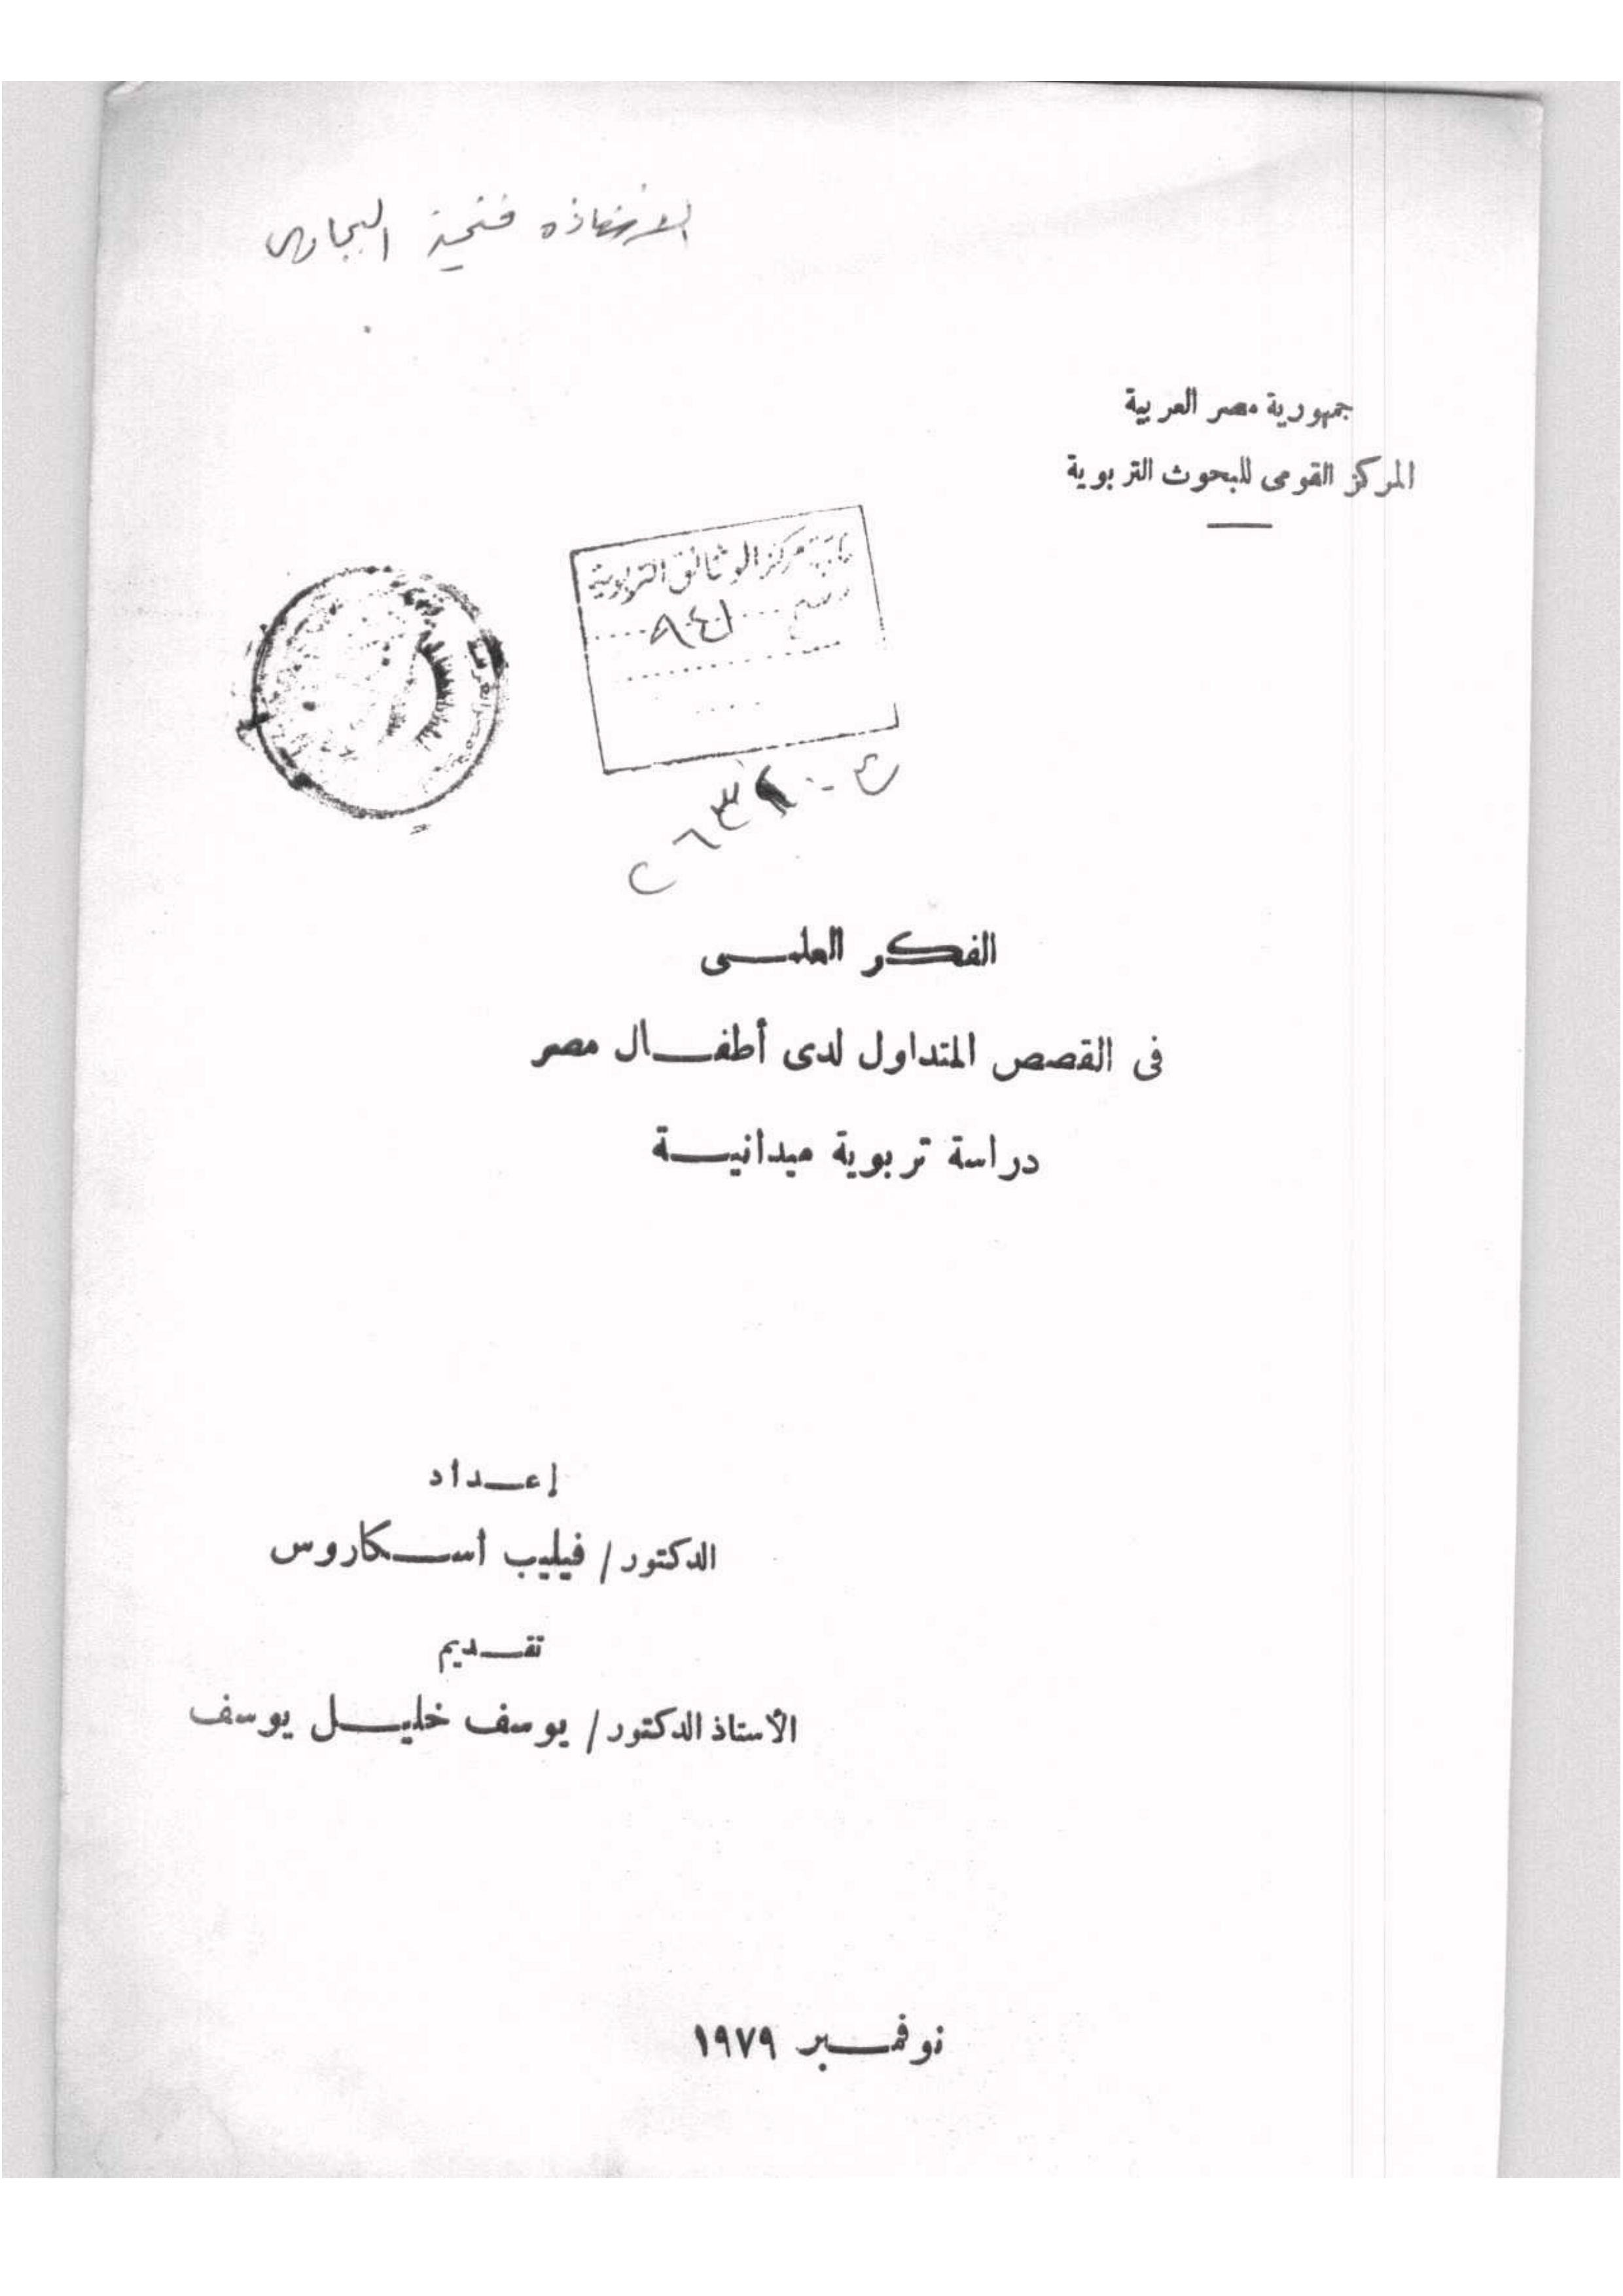 الاستاذه فتحية البجاوى
جمهورية مصر العربية
المركز القومى للبحوث التربوية
مركز الوثائق التربوية
٨٤١
الفكر العلمى
فى القصص المتداول لدى أطفال مصر
دراسة تربوية ميدانية
إعداد
الدكتور / فيليب أسكاروس
تقديم
الأستاذ الدكتور / يوسف خليل يوسف
نوفمبر ١٩٧٩